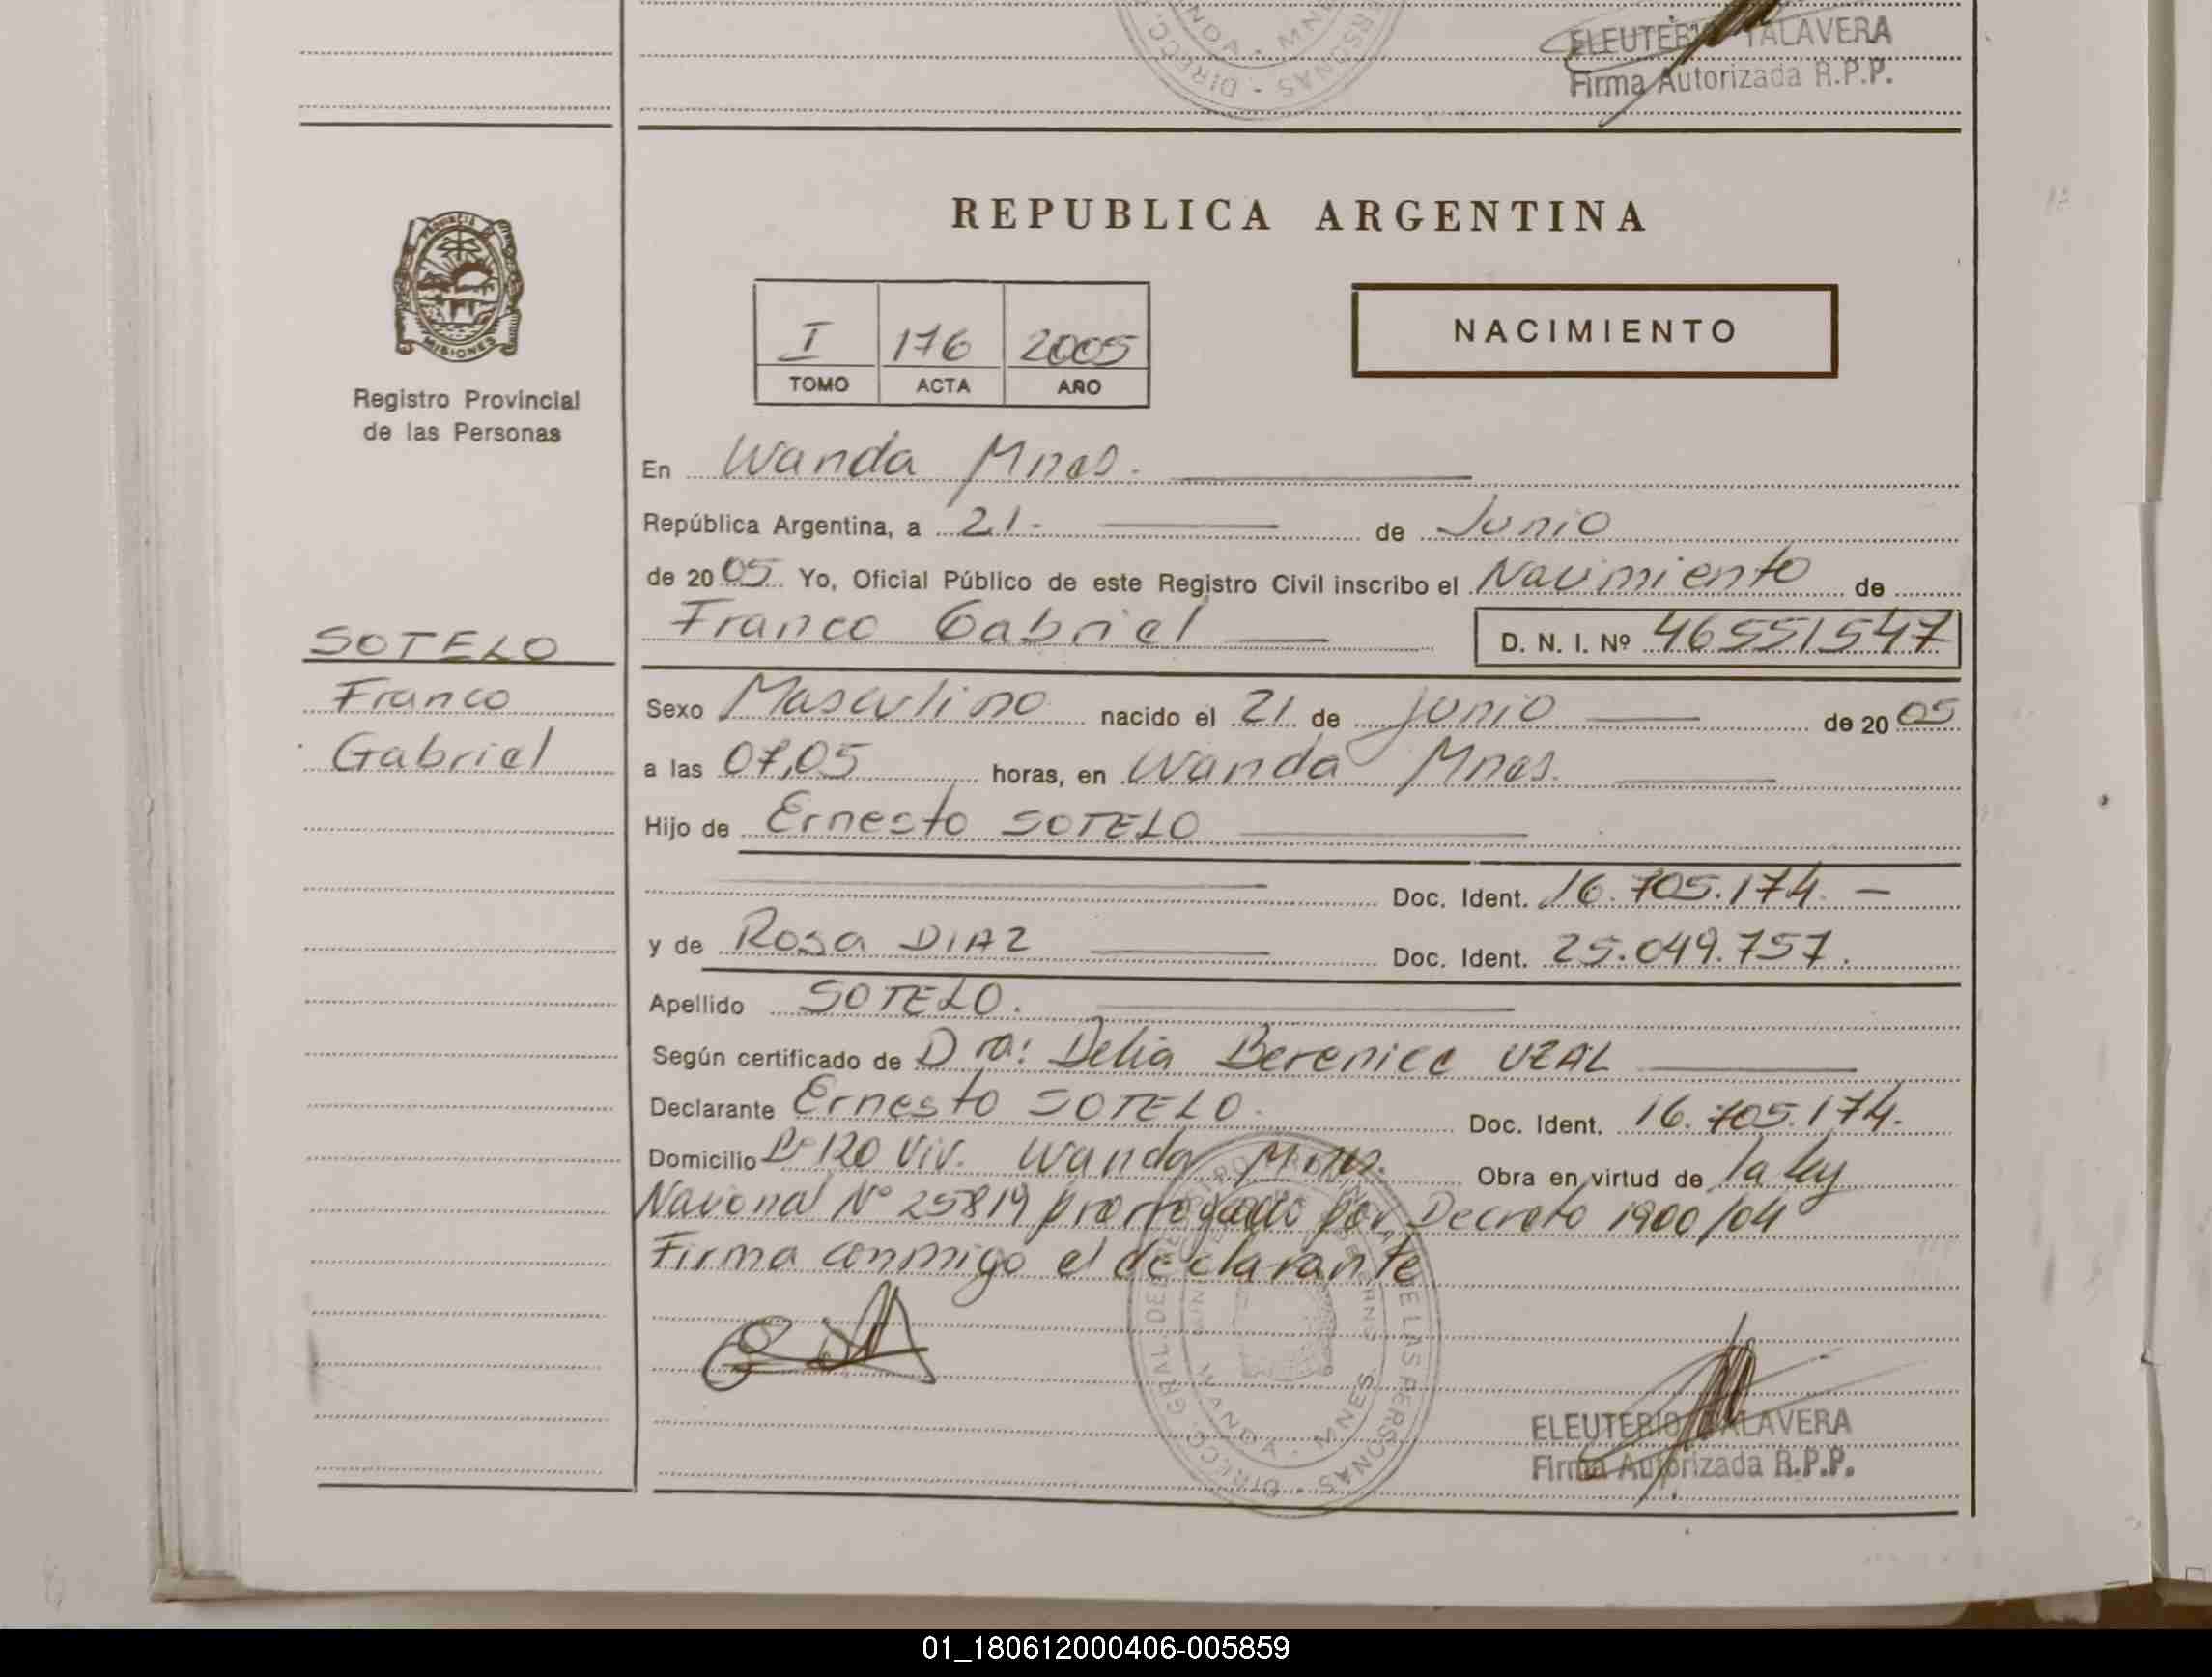 ELEUTERIO TALAVERA
Firma Autorizada R.P.P.
REPUBLICA ARGENTINA
PROVINCIA
MISIONES
Registro Provincial
de las Personas
I 176 2005
TOMO ACTA AÑO
NACIMIENTO
En Wanda Mnes.
República Argentina, a 21- de Junio
de 2005 Yo, Oficial Público de este Registro Civil inscribo el Nacimiento de
Franco Gabriel D. N. I. Nº 46551547
SOTELO
Franco
Gabriel
Sexo Masculino nacido el 21 de junio de 2005
a las 07,05 horas, en Wanda Mnes.
Hijo de Ernesto SOTELO
Doc. Ident. 16.705.174. -
y de Rosa DIAZ Doc. Ident. 25.049.757.
Apellido SOTELO.
Según certificado de Dra: Delia Berenice UZAL
Declarante Ernesto SOTELO. Doc. Ident. 16.705.174.
Domicilio Bº 120 Viv. Wanda Mnes. Obra en virtud de la ley
Nacional Nº 25819 prorrogado por Decreto 1900/04
Firma conmigo el declarante
DIRECC. GRAL DE LAS PERSONAS
WANDA - MNES.
ELEUTERIO TALAVERA
Firma Autorizada R.P.P.
01_180612000406-005859